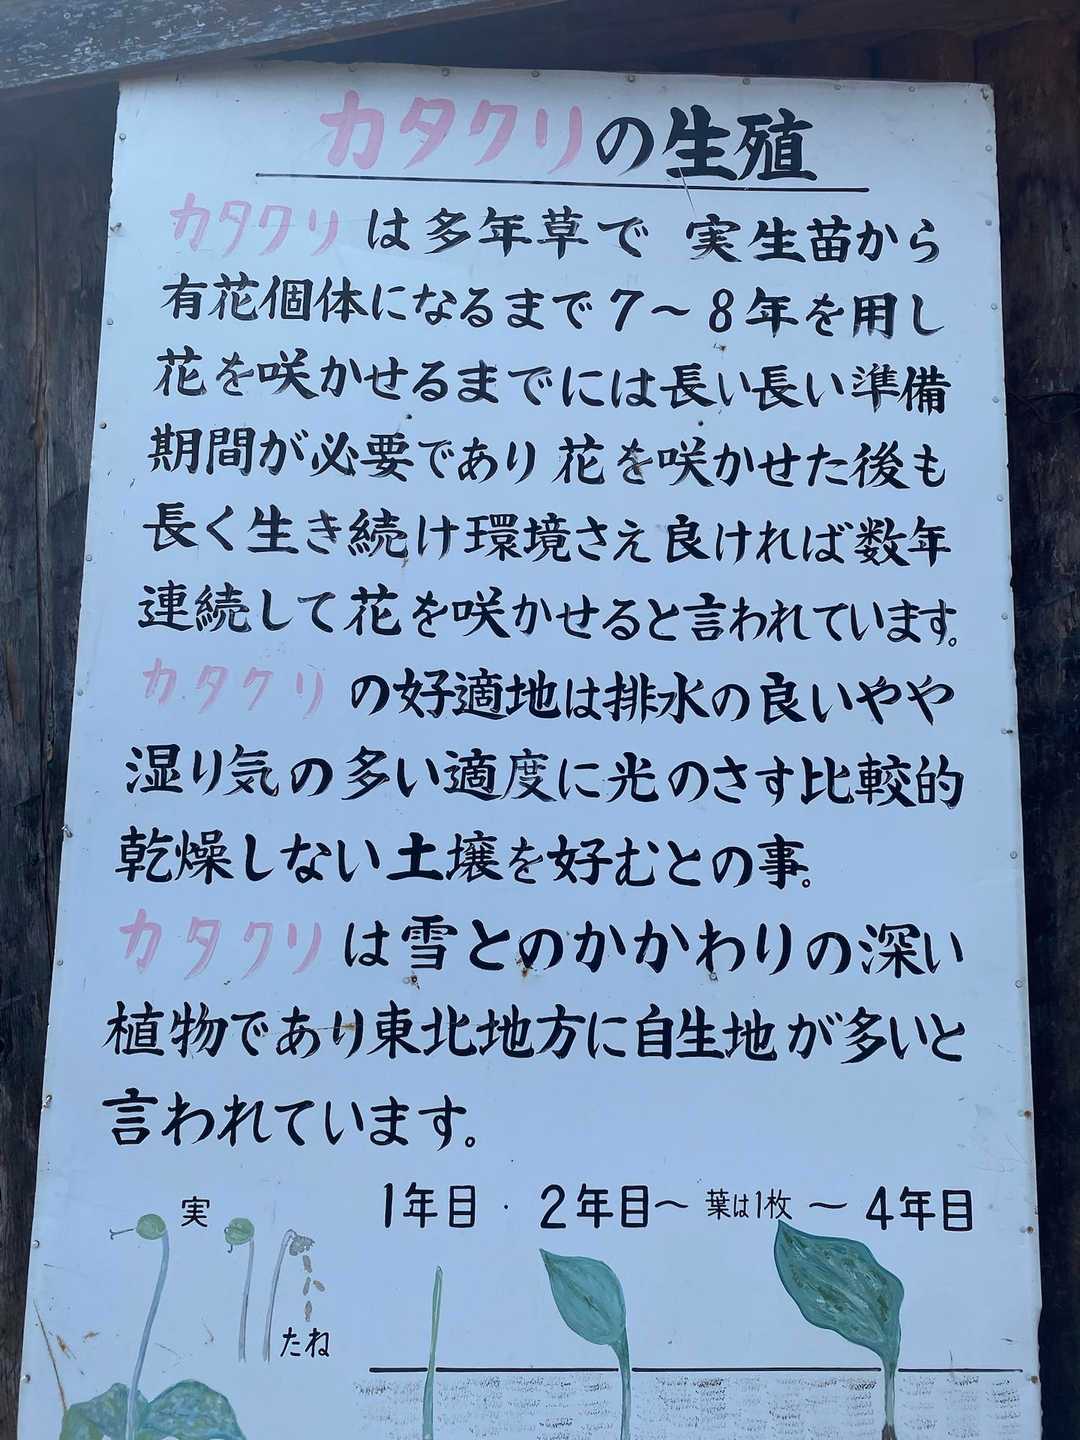 カタクリの生殖
カタクリは多年草で 実生苗から
有花個体になるまで7〜8年を用し
花を咲かせるまでには長い長い準備
期間が必要であり花を咲かせた後も
長く生き続け環境さえ良ければ数年
連続して花を咲かせると言われています。
カタクリの好適地は排水の良いやや
湿り気の多い適度に光のさす比較的
乾燥しない土壌を好むとの事。
カタクリは雪とのかかわりの深い
植物であり東北地方に自生地が多いと
言われています。
実 1年目・2年目〜葉は1枚〜4年目
たね